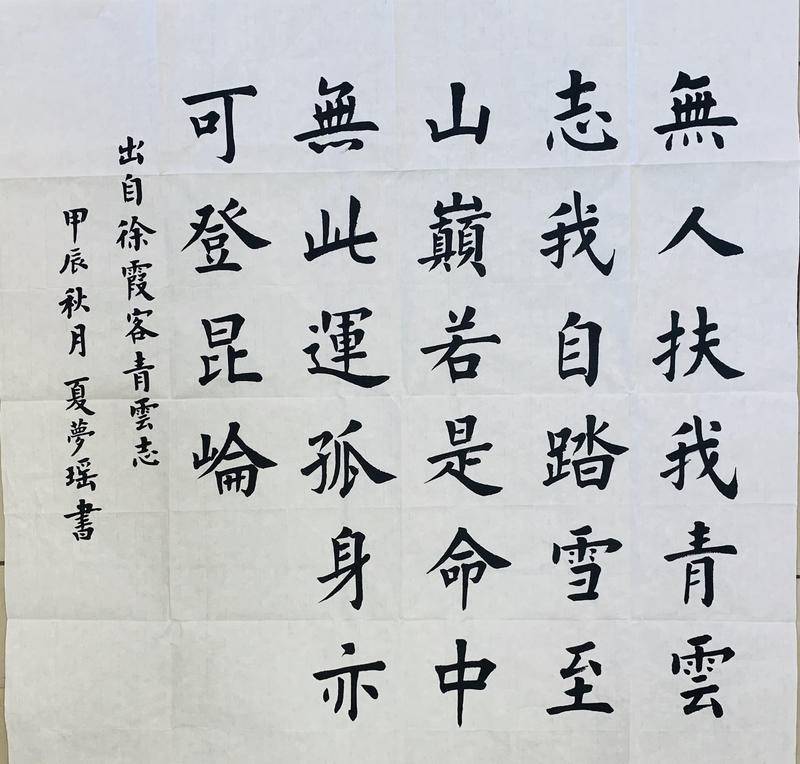 無人扶我青雲
志我自踏雪至
山巔若是命中
無此運孤身亦
可登昆崘
出自徐霞客青雲志
甲辰秋月 夏夢瑶書